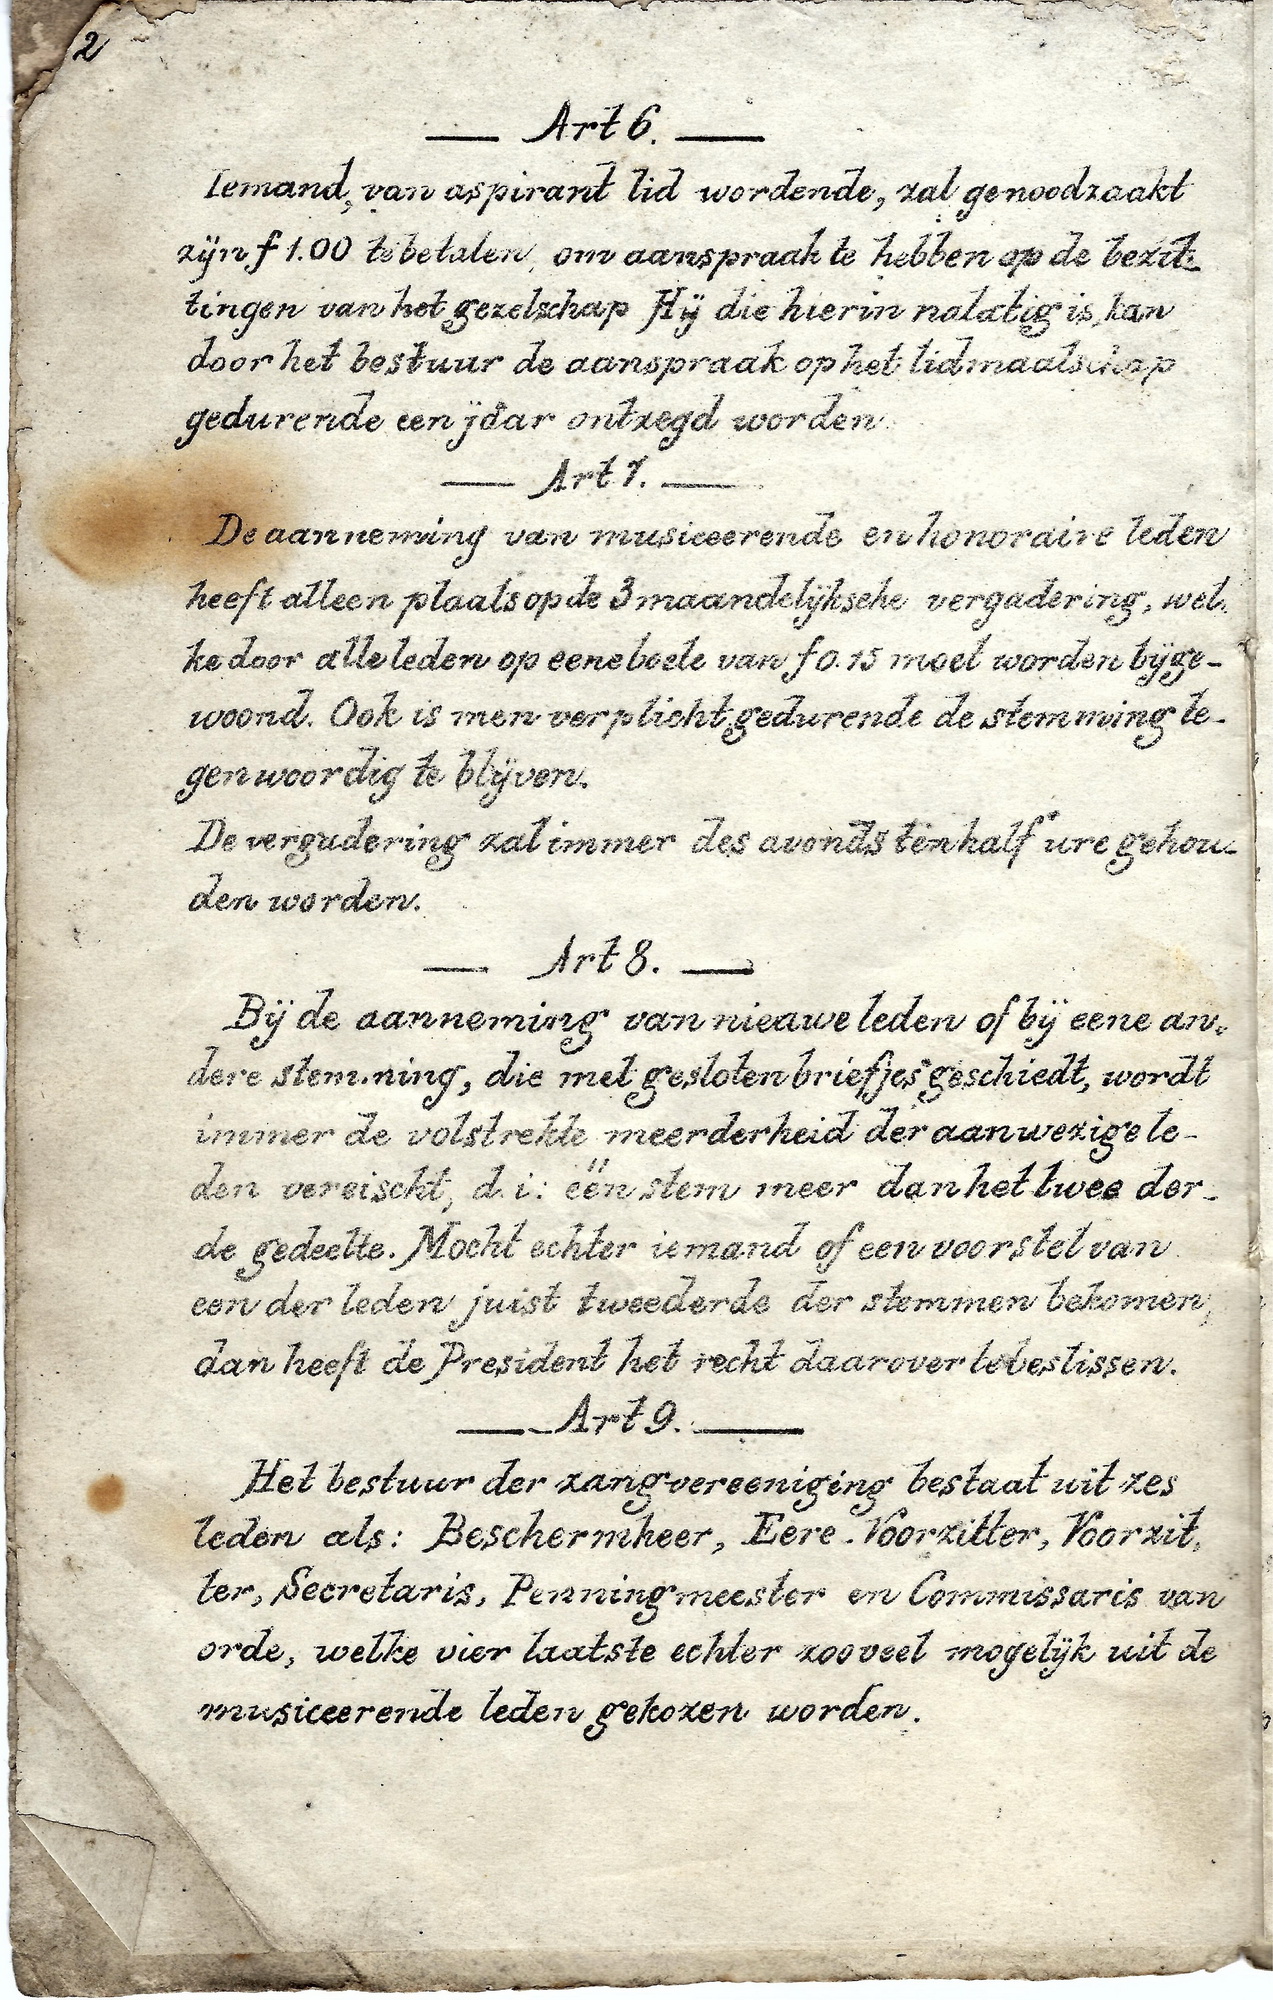 2
Art 6.
Iemand, van aspirant lid wordende, zal genoodzaakt
zijn f 1.00 te betalen, om aanspraak te hebben op de bezit-
tingen van het gezelschap Hij die hierin nalatig is, kan
door het bestuur de aanspraak op het lidmaatschap
gedurende een jaar ontzegd worden.
Art 7.
De aanneming van musiceerende en honoraire leden
heeft alleen plaats op de 3 maandelijksche vergadering, wel-
ke door alle leden op eene boete van f 0.15 moet worden bijge-
woond. Ook is men verplicht, gedurende de stemming te-
genwoordig te blijven.
De vergadering zal immer des avonds ten half ure gehou-
den worden.
Art 8.
Bij de aanneming van nieuwe leden of bij eene an-
dere stemming, die met gesloten briefjes geschiedt, wordt
immer de volstrekte meerderheid der aanwezige le-
den vereischt, d. i: één stem meer dan het twee der-
de gedeelte. Mocht echter iemand of een voorstel van
een der leden juist tweederde der stemmen bekomen,
dan heeft de President het recht daarover te beslissen.
Art 9.
Het bestuur der zangvereeniging bestaat uit zes
leden als: Beschermheer, Eere-Voorzitter, Voorzit-
ter, Secretaris, Penningmeester en Commissaris van
orde, welke vier laatste echter zooveel mogelijk uit de
musiceerende leden gekozen worden.